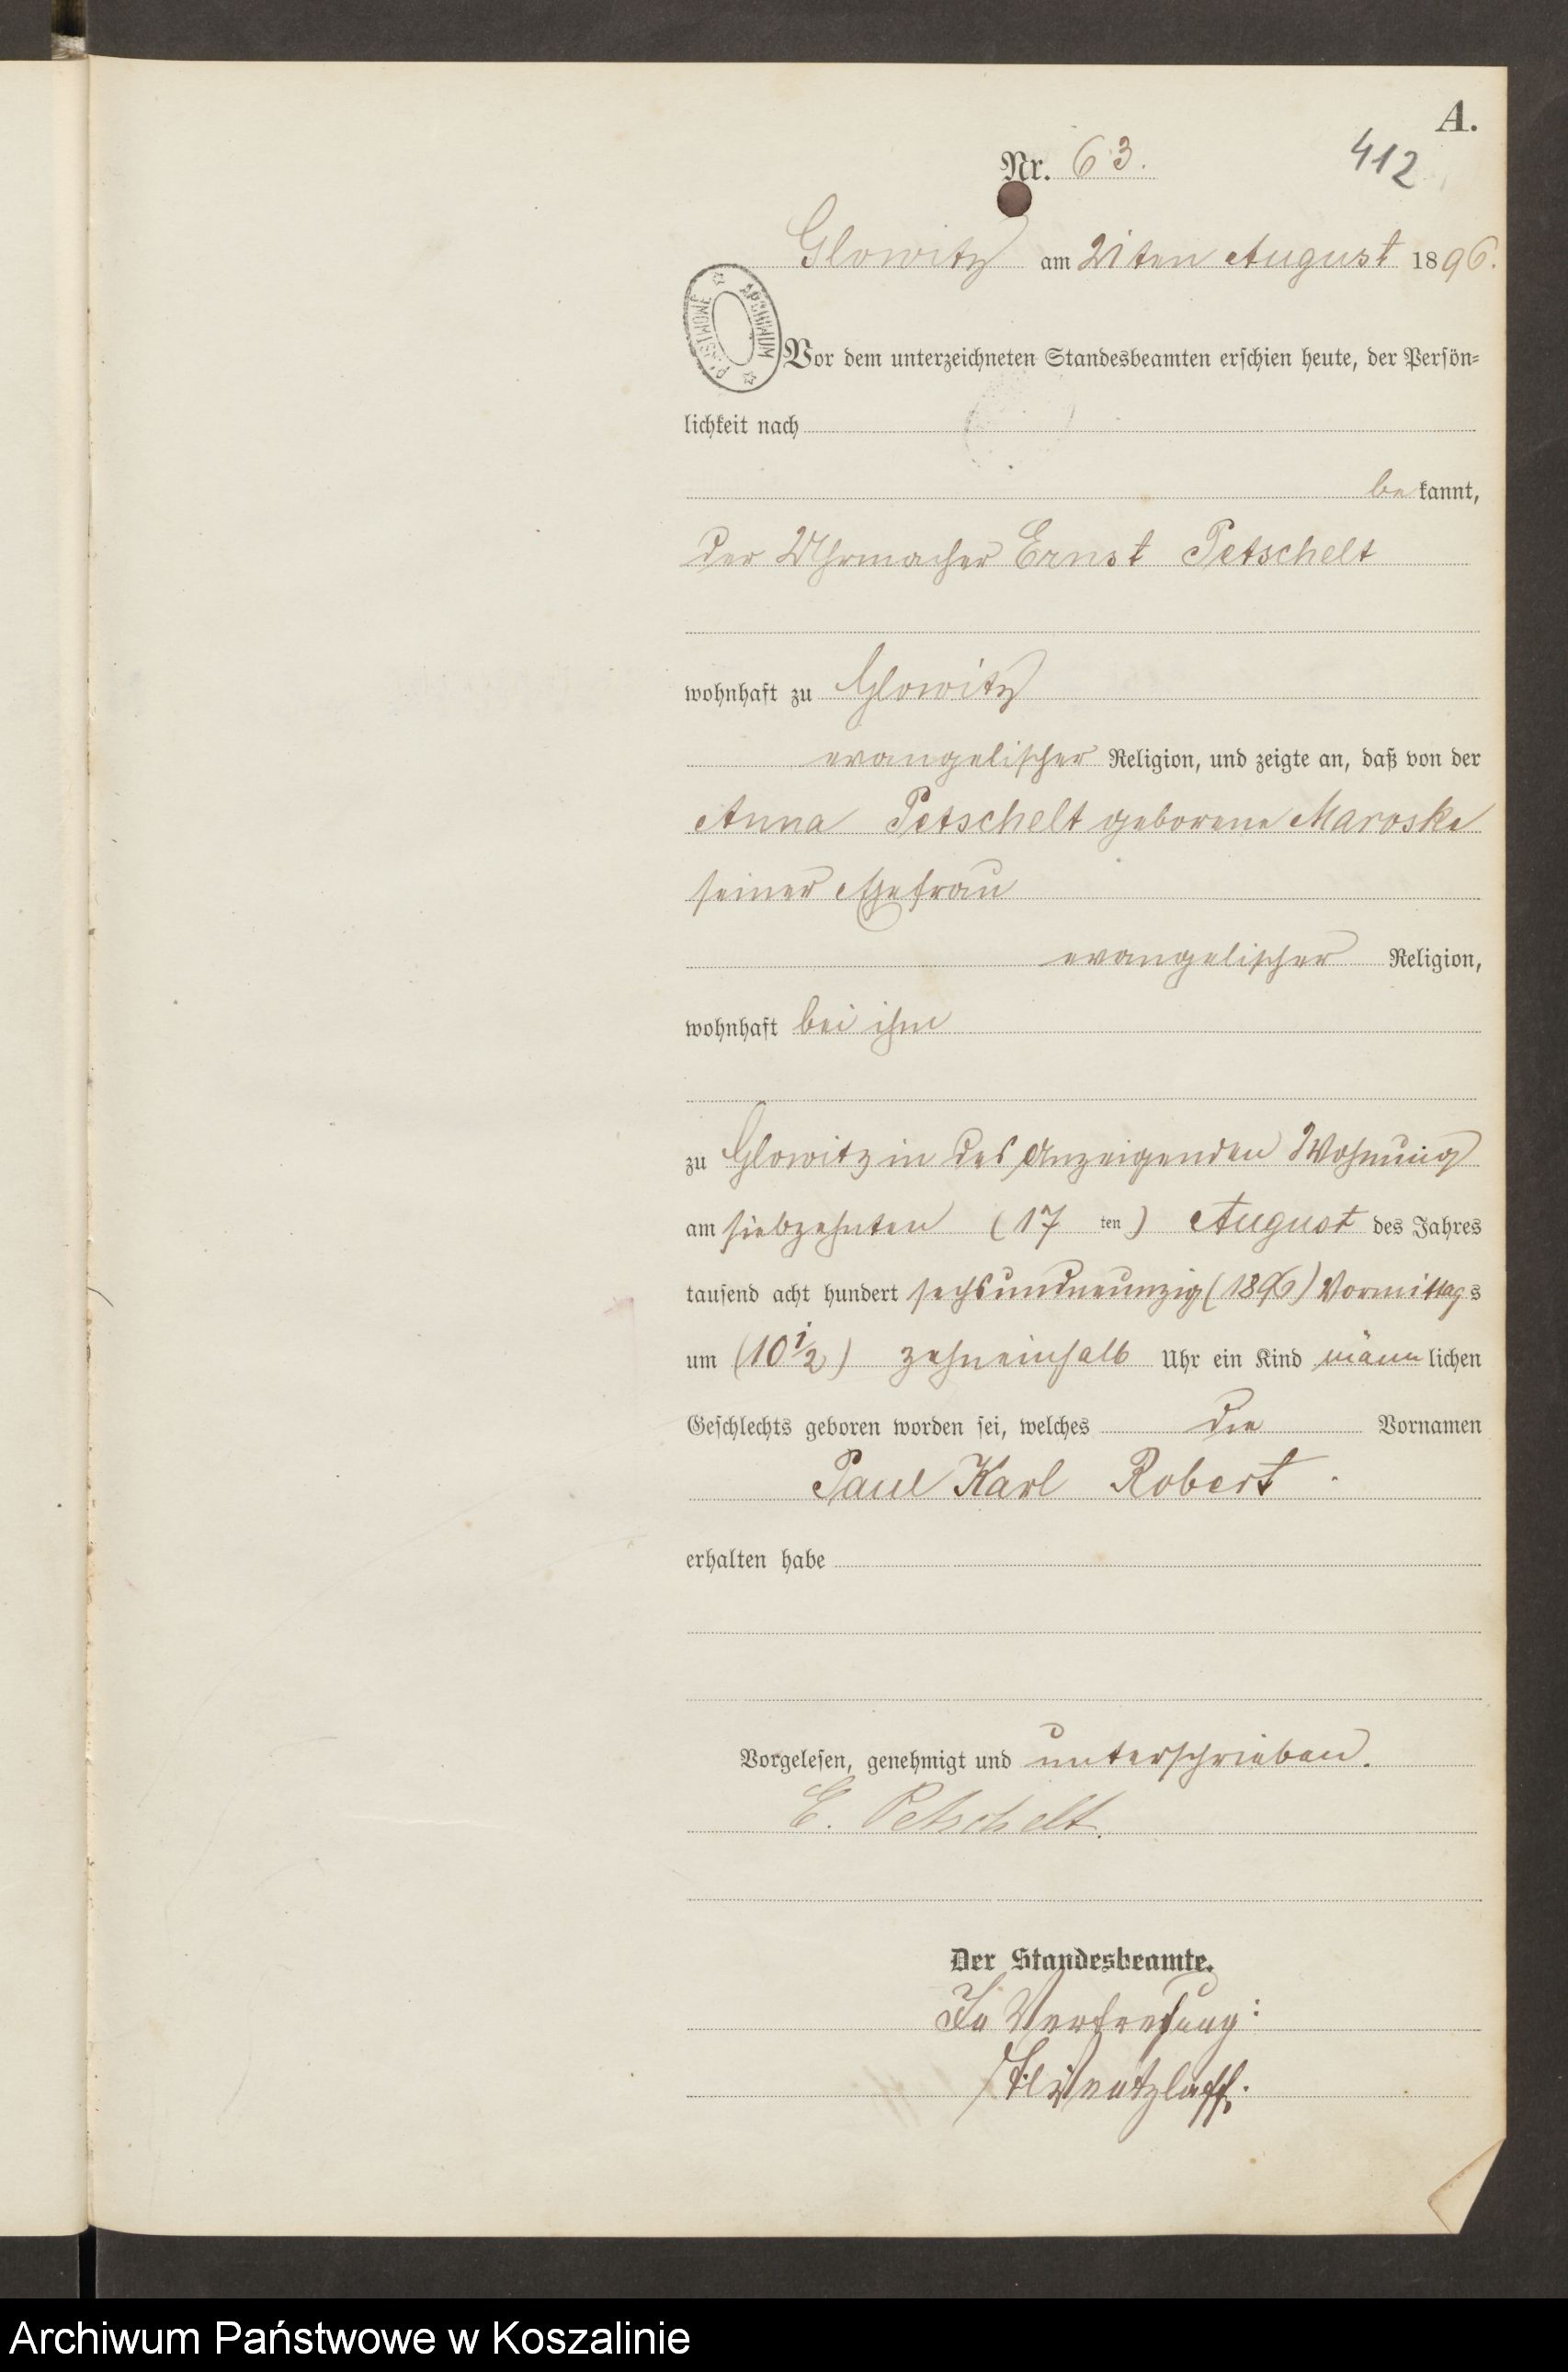 A.
Nr. 63.
412
Glowitz am 21ten August 1896.
ARCHIWUM PAŃSTWOWE
Vor dem unterzeichneten Standesbeamten erschien heute, der Persön-
lichkeit nach
bekannt,
der Uhrmacher Ernst Petschelt
wohnhaft zu Glowitz
evangelischer Religion, und zeigte an, daß von der
Anna Petschelt geborene Maroske
seiner Ehefrau
evangelischer Religion,
wohnhaft bei ihm
zu Glowitz in des Anzeigenden Wohnung
am siebzehnten (17ten) August des Jahres
tausend acht hundert sechsundneunzig (1896) Vormittags
um (10 1/2) zehneinhalb Uhr ein Kind männlichen
Geschlechts geboren worden sei, welches die Vornamen
Paul Karl Robert.
erhalten habe
Vorgelesen, genehmigt und unterschrieben.
E. Petschelt.
Der Standesbeamte.
In Vertretung:
Wentzlaff.
Archiwum Państwowe w Koszalinie